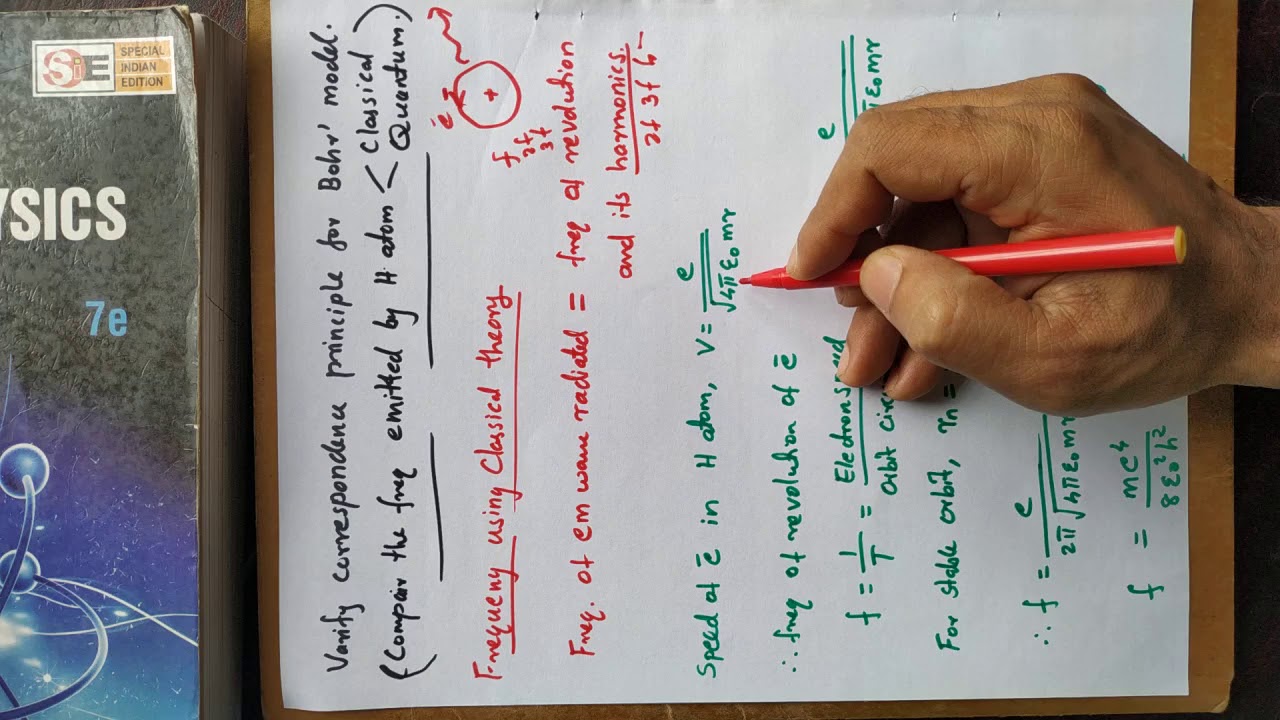 SiE
SPECIAL
INDIAN
EDITION
YSICS
7e
Varify correspondence principle for Bohr' model.
(Compair the freq emitted by H atom < Classical
Quantum.)
Frequency using Classical theory
ē
+
f
2f
3f
Freq. of em wave radiated = freq of revolution
and its harmonics.
2f 3f 4-
Speed of ē in H atom, V = e
√4πε₀ mr
∴ freq of revolution of ē
f = 1/T = Electron speed
orbit circ
e
ε₀ mr
For stable orbit, rn =
∴ f = e
2π √4πε₀ mr
f = me⁴
8ε₀²h²